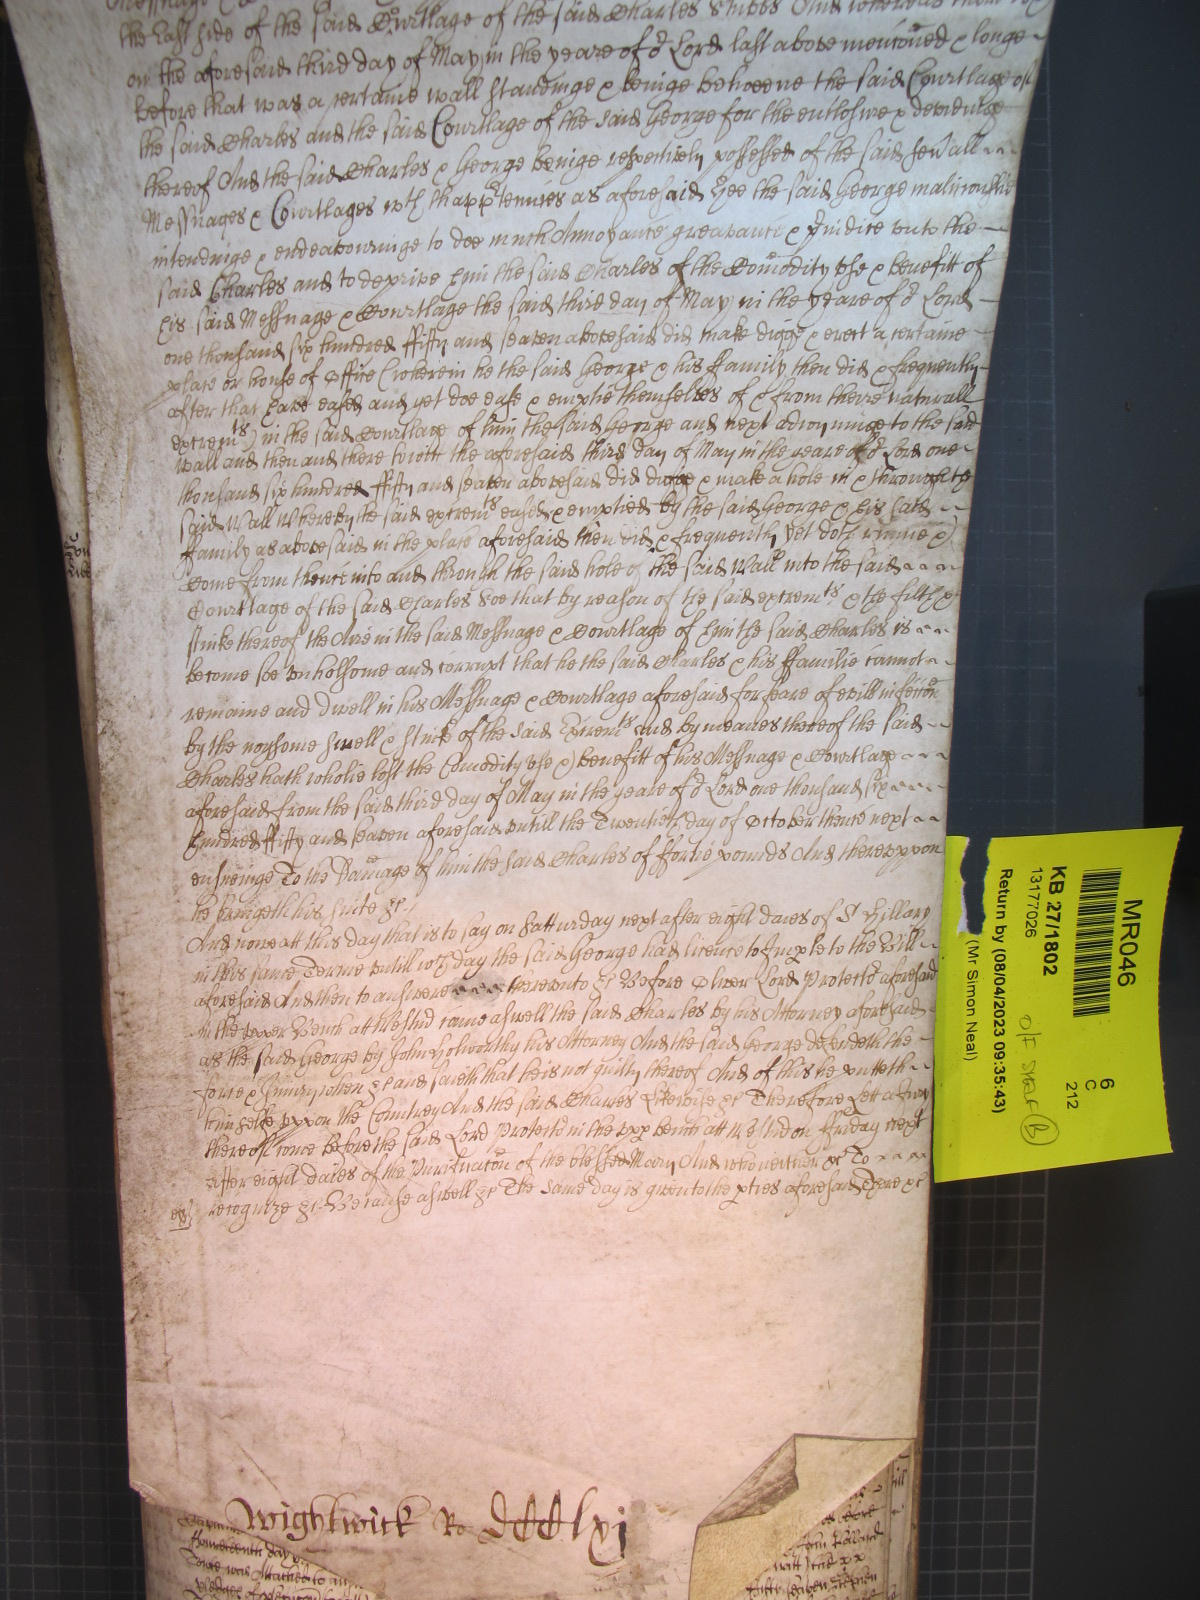 the East side of the said Courtlage of the said Charles Stubbs And whereas
on the aforesaid third day of May in the yeare of or Lord last above menconed & longe
before that was a certaine wall standinge & beinge betweene the said Courtlage of
the said Charles and the said Courtlage of the said George for the enclosure & defendinge
thereof And the said Charles & George beinge respectively possessed of the said sevall
Messuages & Courtlages wth thappurtenances as aforesaid Hee the said George maliciouslie
intendinge & endeavouringe to doe much Annoyance greavance & prudice unto the
said Charles and to deprive him the said Charles of the Comodity use & benefitt of
his said Messuage & Courtlage the said third day of May in the yeare of or Lord
one thousand six hundred ffifty and seaven abovesaid did make digge & erect a certaine
place or house of Office (wherein he the said George & his ffamily then did & frequently
after that have eased and yet doe ease & emptie themselves of & from theire naturall
extremts) in the said Courtlage of him the said George and next adioyninge to the said
wall and then and there towitt the aforesaid third day of May in the yeare of or Lord one
thousand six hundred ffifty and seaven abovesaid did digge & make a hole in & through the
said Wall Whereby the said extremts eased & emptied by the said George & his said
ffamily as abovesaid in the place aforesaid then did & frequently yet doth runne &
Come from thence into and through the said hole of the said Wall into the said
Courtlage of the said Charles Soe that by reason of the said extremts & the filth &
stinke thereof the Aire in the said Messuage & Courtlage of him the said Charles is
become soe unholsome and corrupt that he the said Charles & his ffamilie cannot
remaine and dwell in his Messuage & Courtlage aforesaid for feare of evill infeccon
by the noysome smell & stinke of the said Extremts and by meanes thereof the said
Charles hath wholie lost the Comodity use & benefitt of his Messuage & Courtlage
aforesaid from the said third day of May in the yeare of or Lord one thousand six
hundred ffifty and seaven aforesaid untill the Twentieth day of October thence next
ensueinge To the Damage of him the said Charles of ffortie pounds And thereuppon
he bringeth his suite &c
And nowe att this day that is to say on Satturday next after eight daies of St Hillary
in this same Terme untill wch day the said George had licence to Imple to the Bill
aforesaid And then to answere thereunto &c Before Oliver Lord Protector aforesaid
in the upper Bench att Westmd came aswell the said Charles by his Attorney aforesaid
as the said George by John Holworthy his Attorney And the said George defendeth the
force & Iniury when &c and saieth that he is not guilty thereof And of this he putteth
himselfe uppon the Countrey And the said Charles likewise &c Therefore lett a Jury
thereof come before the said Lord Protector in the upp bench att Westmd on ffriday next
after eight daies of the Purificacon of the blessed Mary And who neither &c To
recognize &c Because aswell &c The same day is given to the pties aforesaid There &c
Wightwick Ro DCClxi
MR046
6
C
212
KB 27/1802
13177026
O/F Shelf (B)
Return by (08/04/2023 09:35:43)
(Mr Simon Neal)